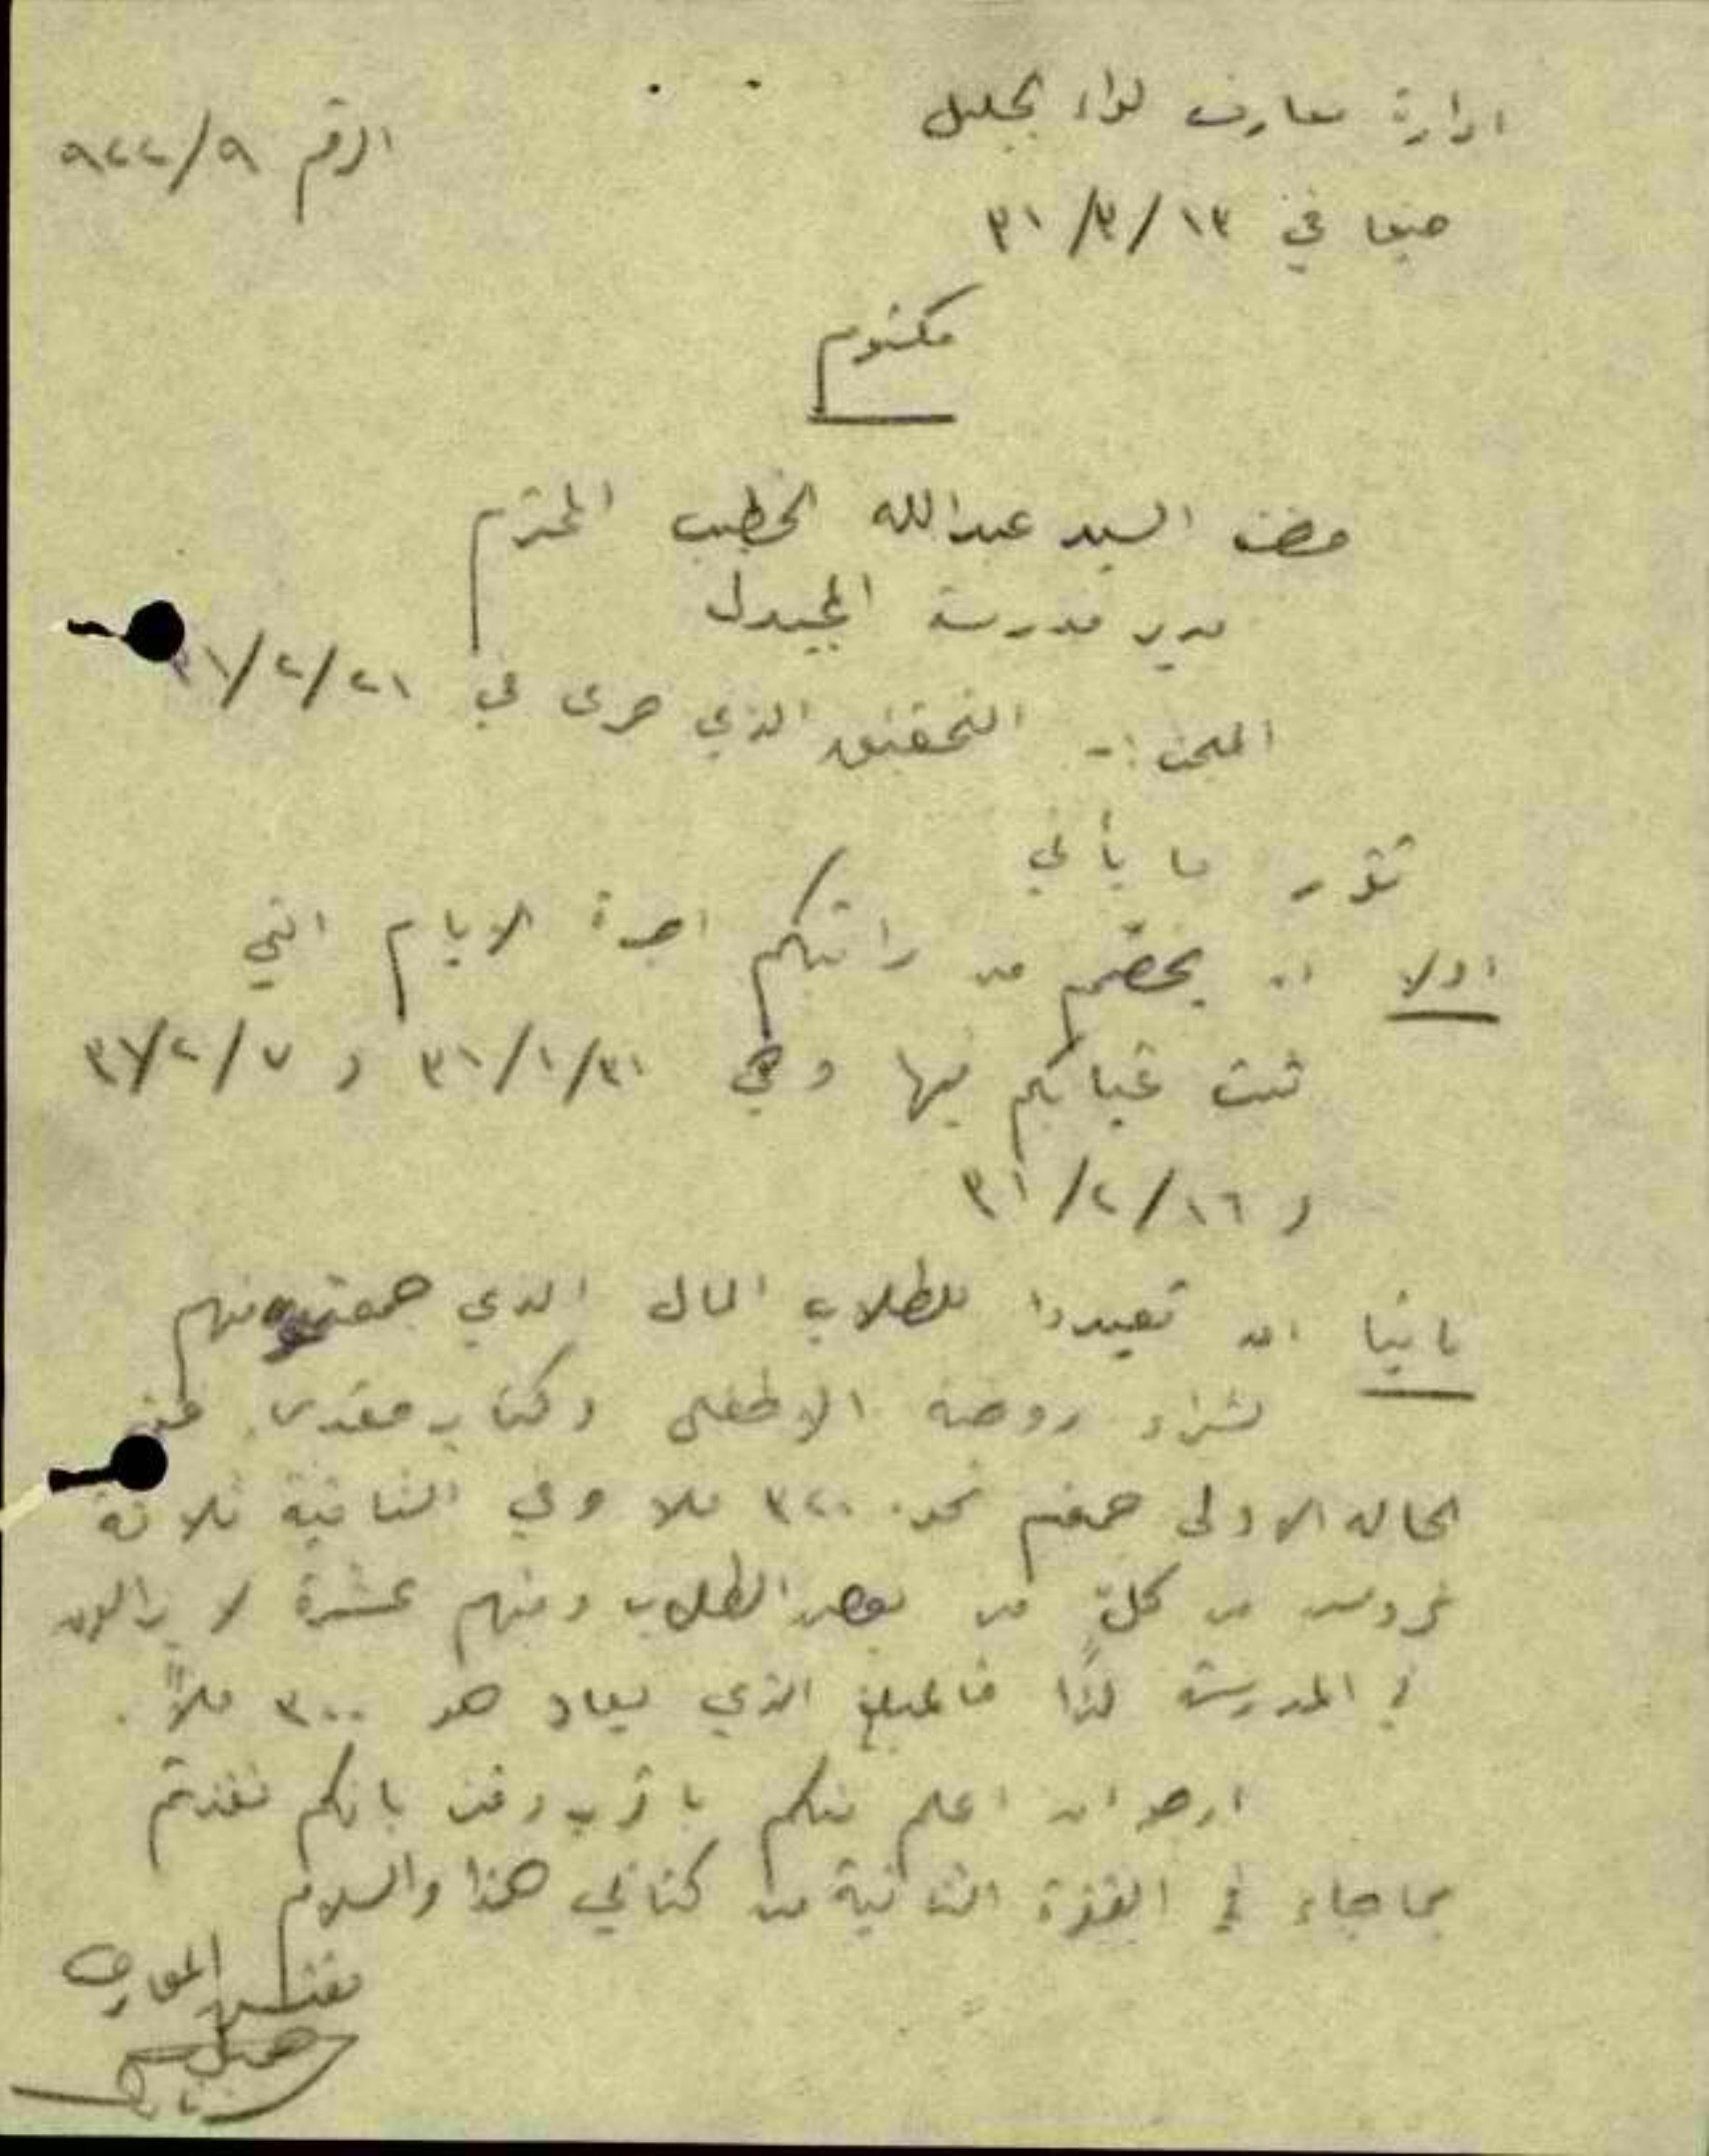 ادارة معارف لواء الجليل
الرقم ٩/٩٢٢
حيفا في ١٣/٣/٣١
مكتوم
حضرة السيد عبدالله الخطيب المحترم
مدير مدرسة المجيدل
المبحث :- التحقيق الذي جرى في ٢١/٢/٣١
تقرر ما يأتي
اولا ان يخصم من راتبكم اجرة الايام التي
ثبت غيابكم فيها وهي ٣١/١/٣١ و ٧/٢/٣١
و ١٦/٢/٣١
ثانيا ان تعيدوا للطلاب المال الذي جمعتموه منهم
لشراء روضة الاطفال وكتاب مقدسي ففي
الحالة الاولى جمعتم نحو ٣٢٠ ملا وفي الثانية ثلاثة
غروش من كلٍ من بعض الطلاب ومنهم عشرة لا يزالون
في المدرسة لذا فالمبلغ الذي يعاد هو ٣٠٠ ملاً.
ارجو ان اعلم منكم باقرب وقت بانكم نفذتم
بما جاء في الفقرة الثانية من كتابي هذا والسلام
مفتش المعارف